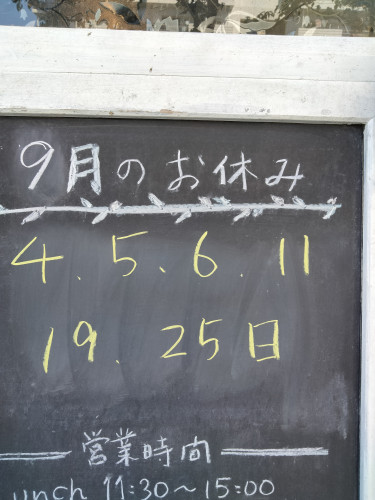 9月のお休み
4、5、6、11
19、25日
営業時間
unch 11:30～15:00